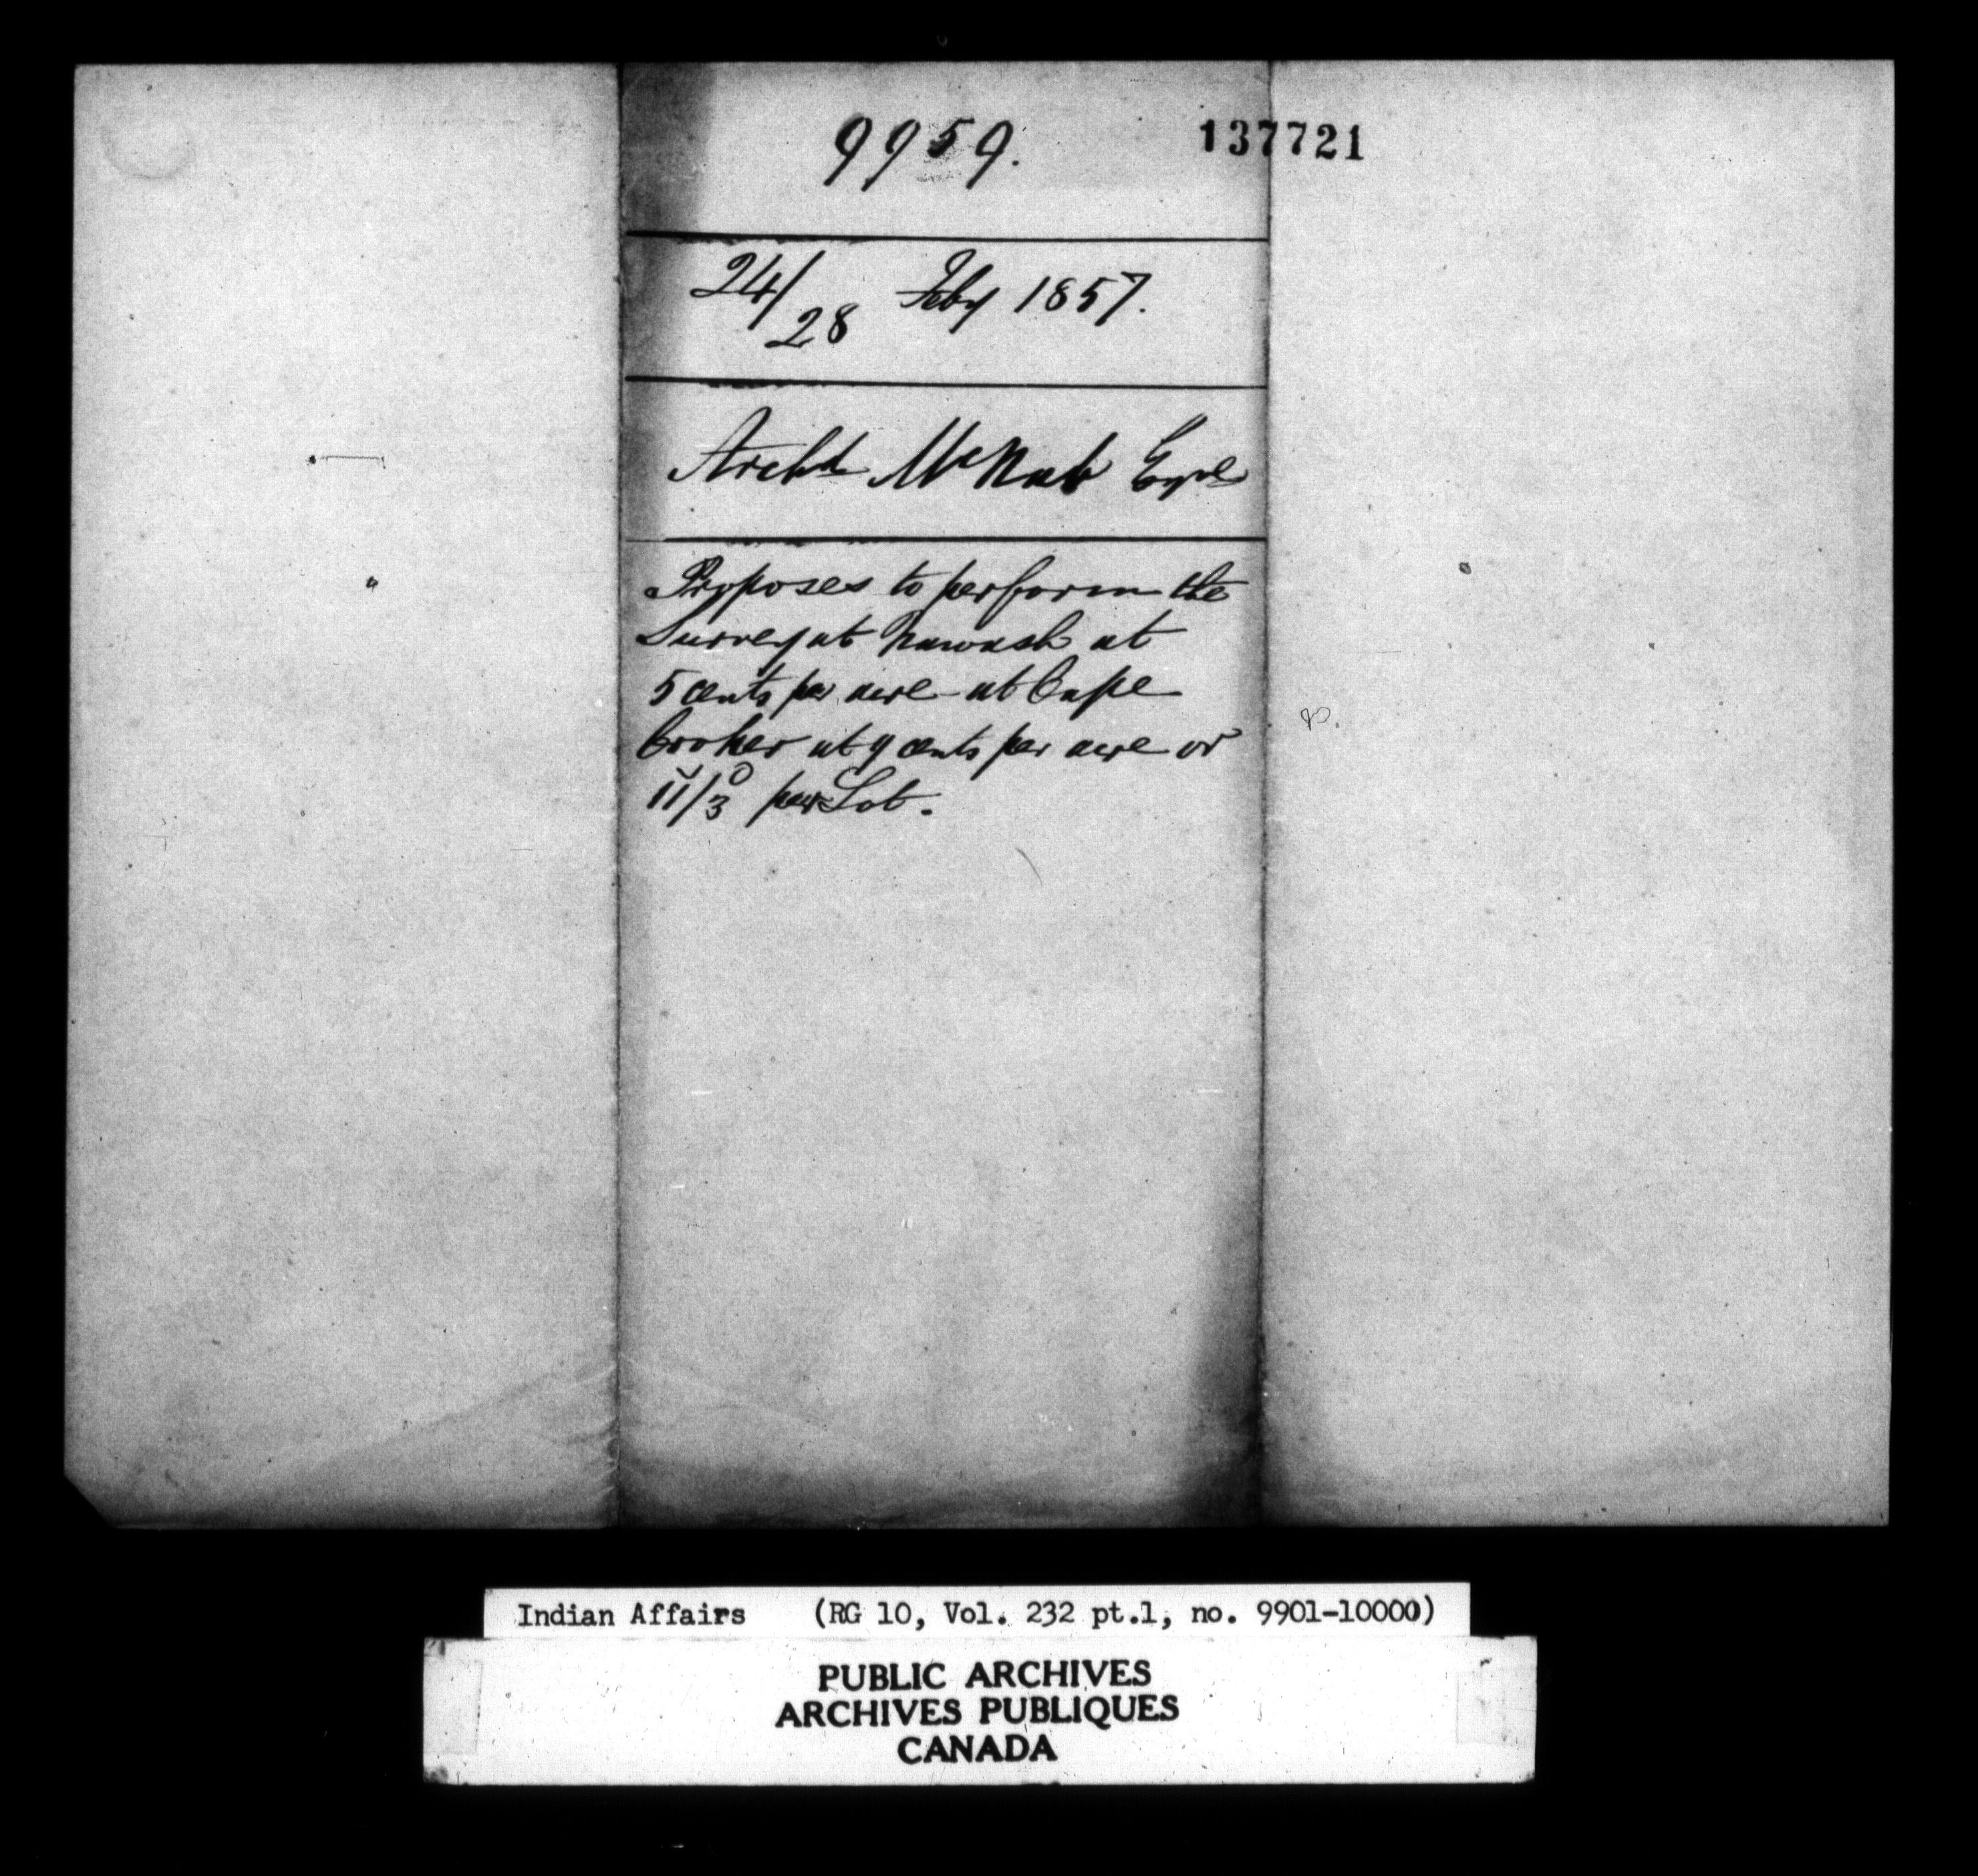 9959.
137721
24/28 Feby 1857.
Archd McNab Esqre
Proposes to perform the
Survey at Nawash at
5 cents per acre - at Cape
Croker at 9 cents per acre or
11/3 per Lot.
Indian Affairs (RG 10, Vol. 232 pt.1, no. 9901-10000)
PUBLIC ARCHIVES
ARCHIVES PUBLIQUES
CANADA